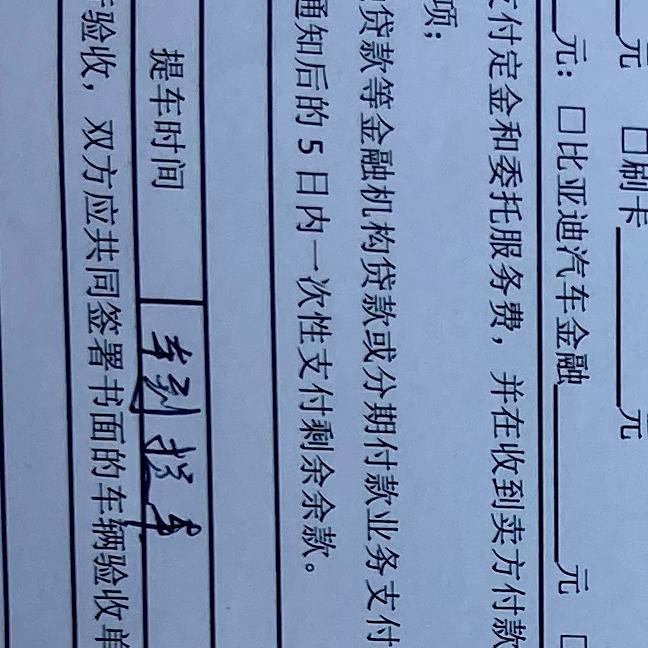 元 □刷卡 元
元：□比亚迪汽车金融 元 □
支付定金和委托服务费，并在收到卖方付款
项；
贷款等金融机构贷款或分期付款业务支付
通知后的5日内一次性支付剩余余款。
提车时间 车到提车
验收，双方应共同签署书面的车辆验收单